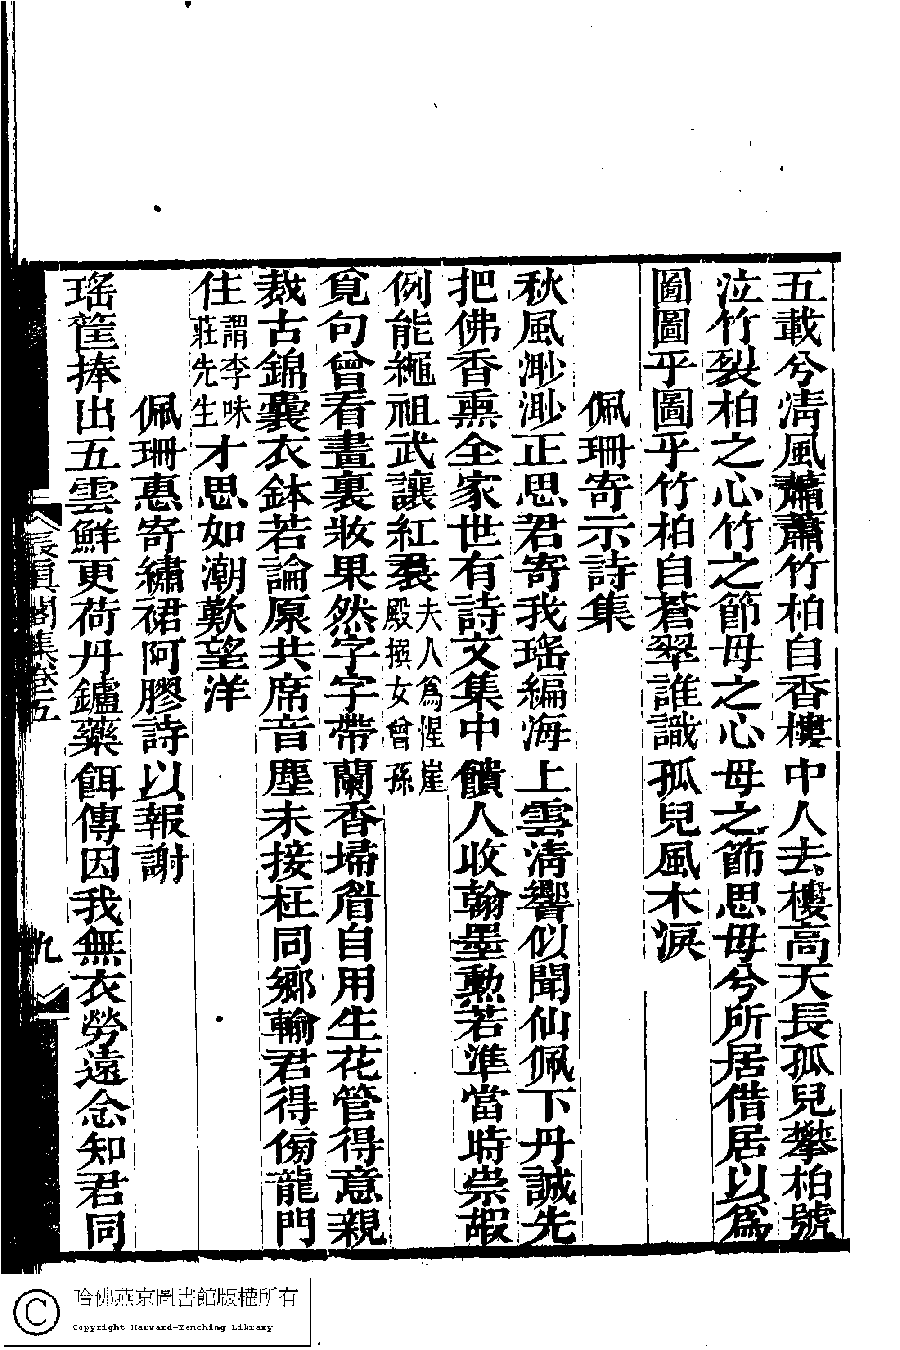 五載兮淸風蕭蕭竹柏自香樓中人去樓高天長孤兒攀柏號
泣竹裂柏之心竹之節母之心母之節思母兮所居借居以爲
圖圖乎圖乎竹柏自蒼翠誰識孤兒風木淚
佩珊寄示詩集
秋風渺渺正思君寄我瑤編海上雲淸響似聞仙佩下丹誠先
把佛香熏全家世有詩文集中饋人收翰墨勲若準當時崇嘏
例能繩祖武讓紅裠夫人爲惺崖殿撰女曾孫
覓句曾看畫裏妝果然字字帶蘭香埽眉自用生花管得意親
裁古錦囊衣鉢若論原共席音塵未接枉同鄉輸君得傍龍門
住謂李味莊先生才思如潮歎望洋
佩珊惠寄繡裙阿膠詩以報謝
瑤筐捧出五雲鮮更荷丹鑪藥餌傳因我無衣勞遠念知君同
長眞閣集卷五
九
哈佛燕京圖書館版權所有
Copyright Harvard-Yenching Library